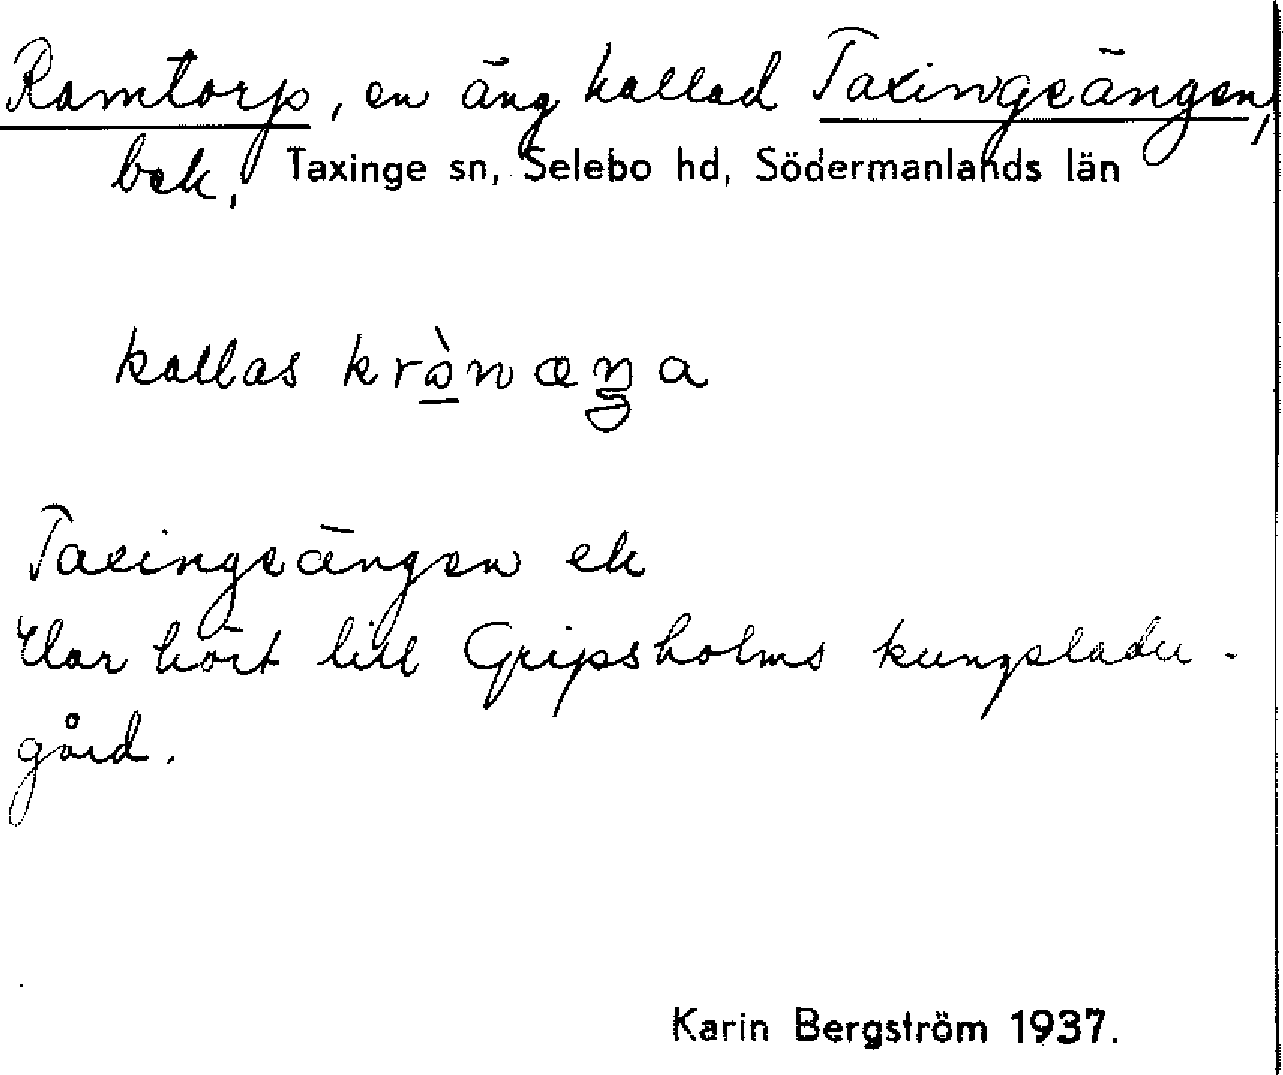 Ramtorp, en äng kallad Taxingeängen,
bek. Taxinge sn, Selebo hd, Södermanlands län
kallas
Taxingeängen ek
Har hört till Gripsholms kungsladu-
gård.
Karin Bergström 1937.